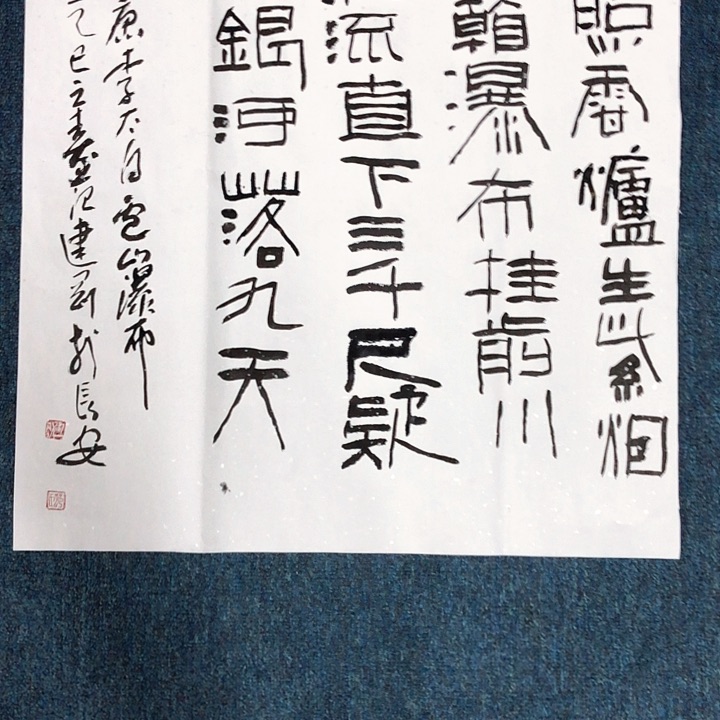 照香爐生紫烟
看瀑布挂前川
流直下三千尺疑
銀河落九天
唐李太白廬山瀑布
乙巳之春建於長安